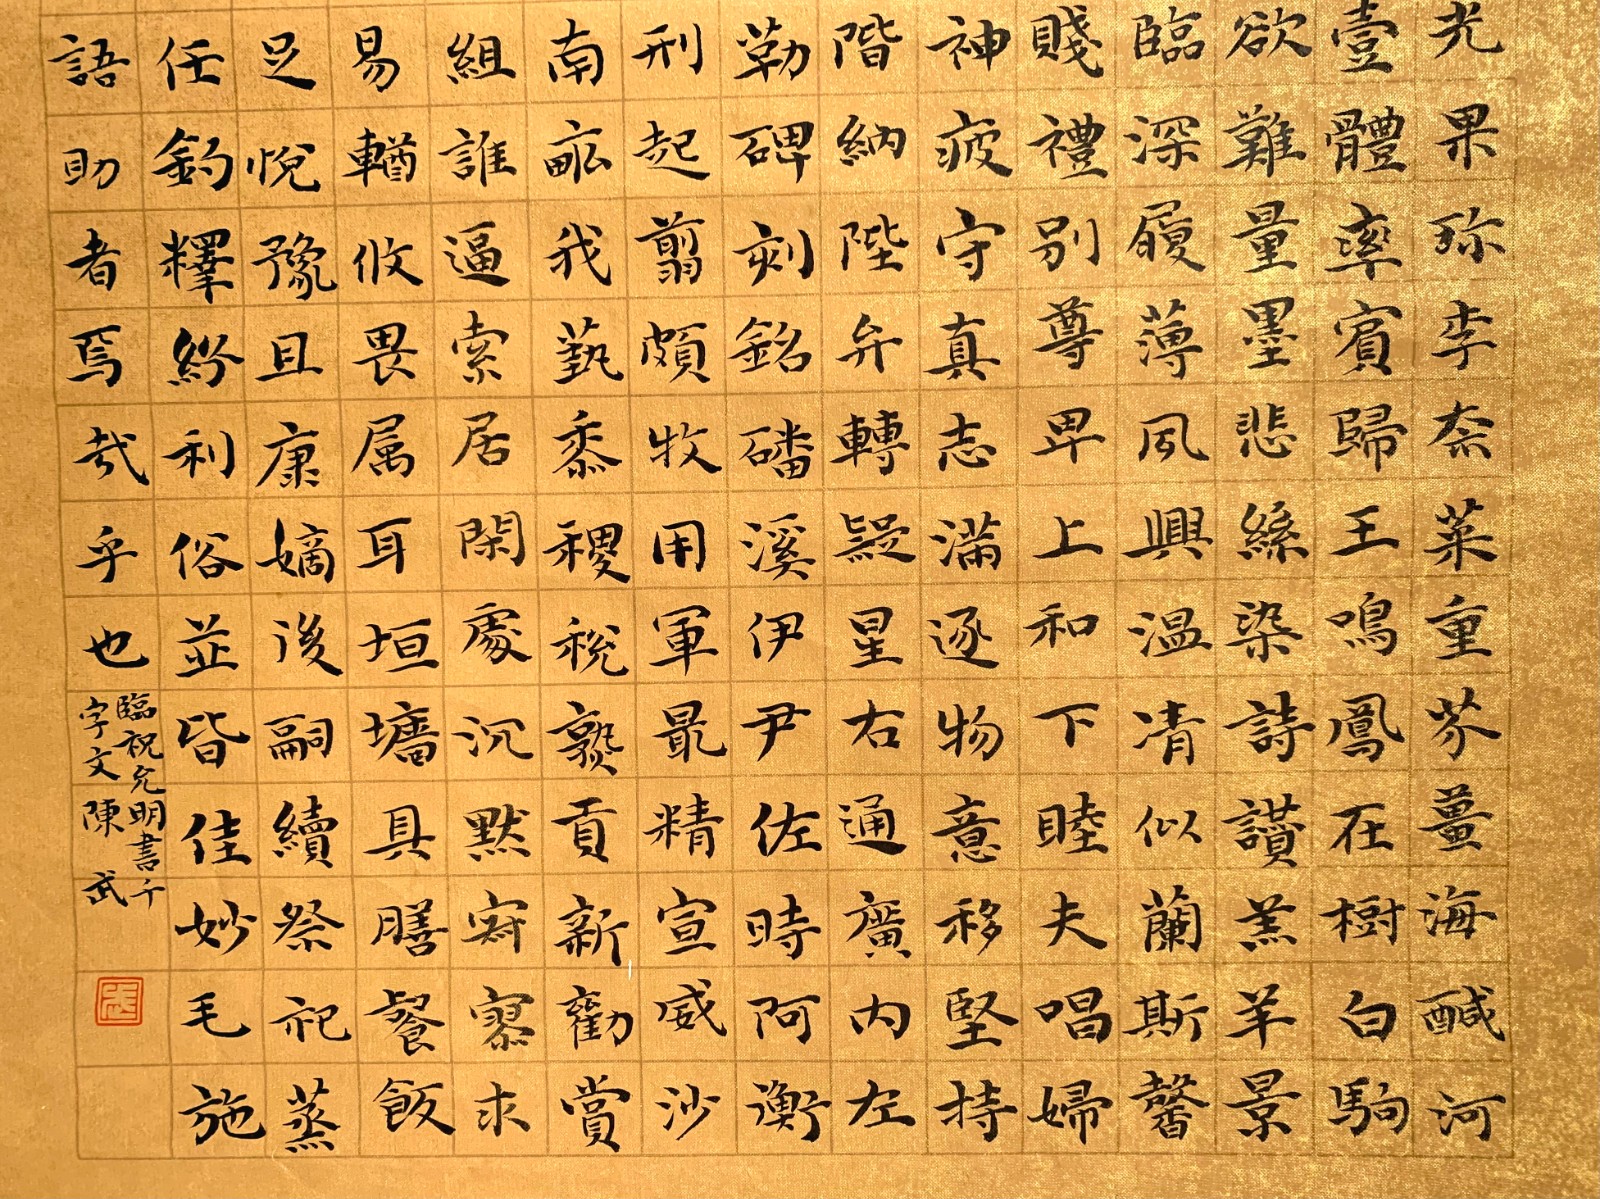 光果珎李柰菜重芥薑海醎河
壹體率賓歸王鳴鳳在樹白駒
欲難量墨悲絲染詩讚羔羊景
臨深履薄夙興温凊似蘭斯馨
賤禮別尊卑上和下睦夫唱婦
神疲守真志滿逐物意移堅持
階納陛弁轉疑星右通廣內左
勒碑刻銘磻溪伊尹佐時阿衡
刑起翦頗牧用軍最精宣威沙
南畝我藝黍稷稅熟貢新勸賞
組誰逼索居閑處沉默寂寥求
易輶攸畏属耳垣墻具膳餐飯
足悅豫且康嫡後嗣續祭祀蒸
任釣釋紛利俗並皆佳妙毛施
語助者焉哉乎也
臨祝允明書千
字文 陳武
武